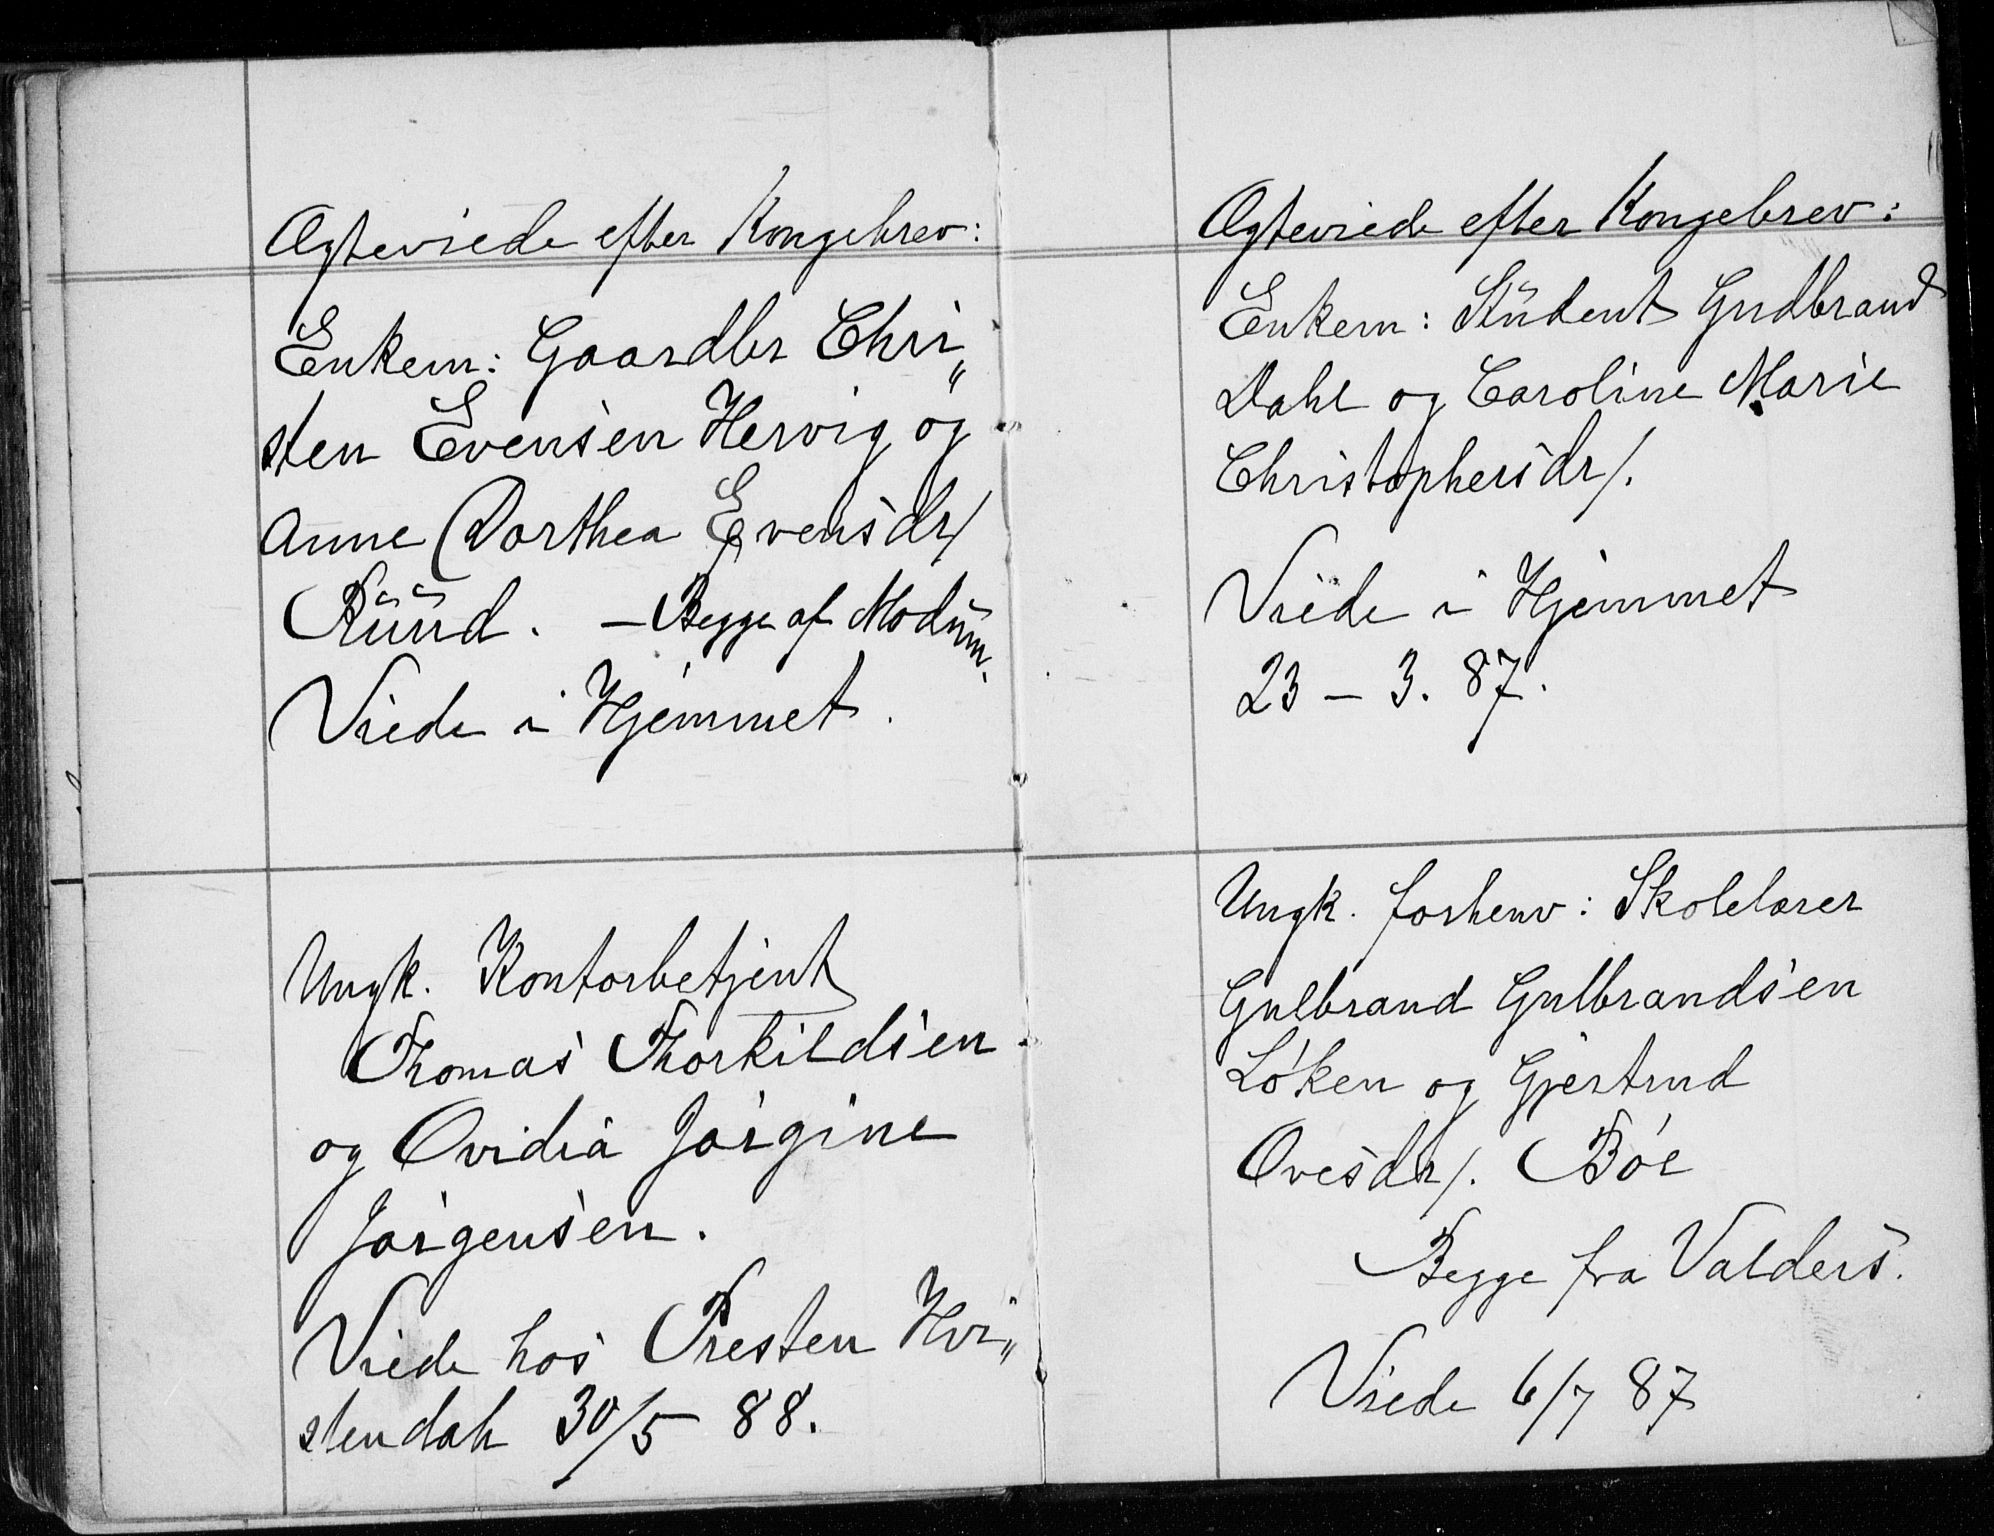 Ægteviede efter Kongebrev:
Enkem: Gaardbr Chri„
sten Evensen Hervig og
Anne Dorthea Evensdr/
Ruud. – Begge af Modum.
Viede i Hjemmet.
Ungk. Kontorbetjent
Thomas Thorkildsen
og Ovidia Jørgine
Jørgensen.
Viede hos Presten Hvi„
stendah 30/5 88.
Ægteviede efter Kongebrev:
Enkem: Student Gudbrand
Dahl og Caroline Marie
Christophersdr/.
Viede i Hjemmet
23 – 3. 87.
Ungk. forhenv: Skolelærer
Gulbrand Gulbrandsen
Løken og Gjertrud
Ovesdr/. Bøe
Begge fra Valders.
Viede 6/7 87